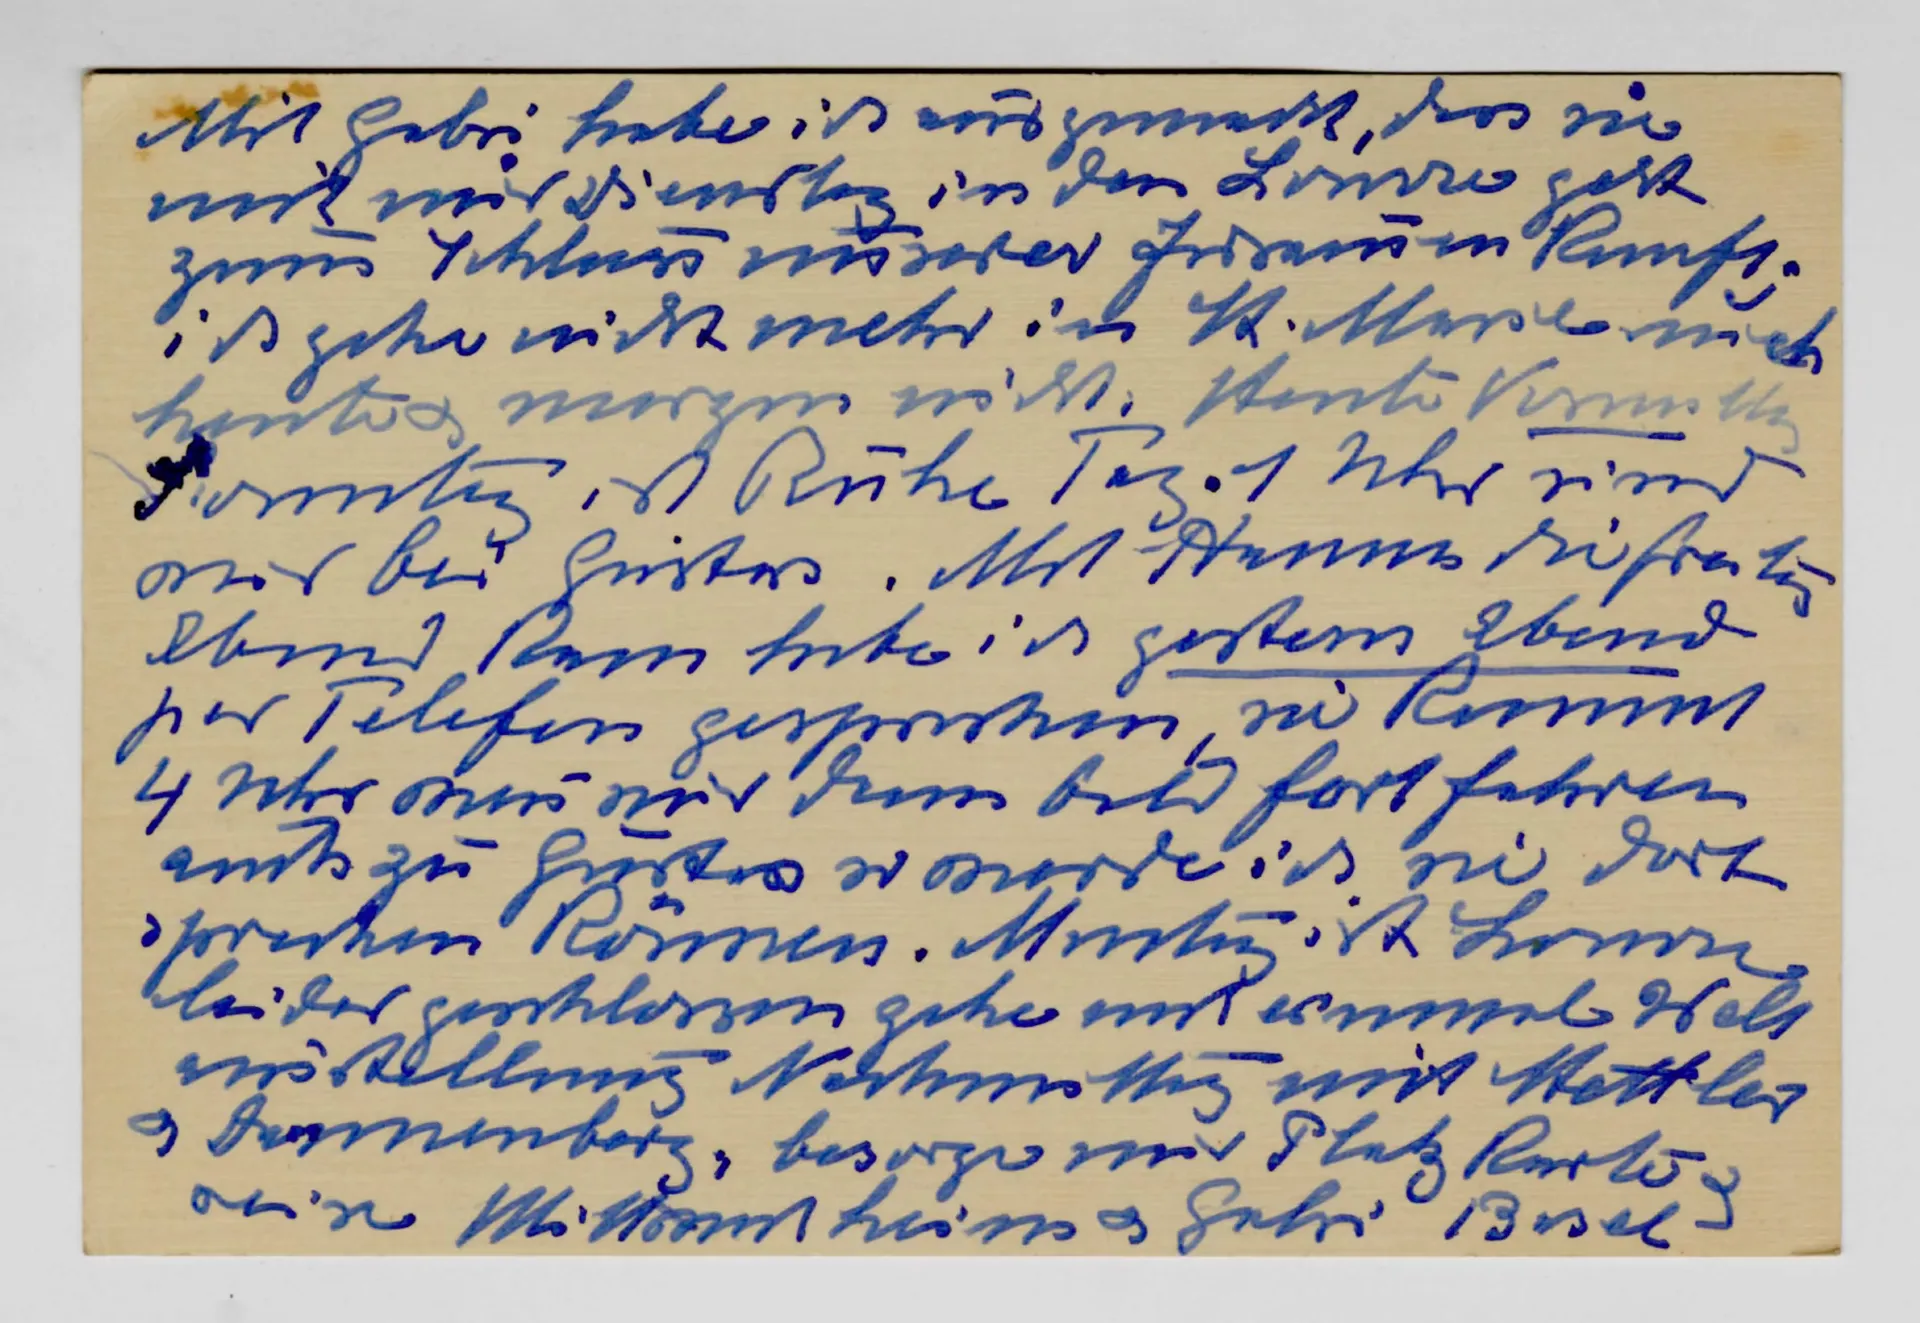 Mit Gabri habe ich ausgemacht, dass sie
mit mir Dienstag in den Louvre geht
zum Schluss unserer Zusammenkunft.
ich gehe nicht mehr in St. Marie auch
heute & morgen nicht. Heute Vormittag
Sonntag ist Ruhe Tag. 1 Uhr sind
wir bei Gustav. Mit Hanna die freitag
Abend kam habe ich gestern Abend
per Telefon gesprochen, sie kommt
4 Uhr wenn wir dann bald fortfahren
auch zu Gustav so werde ich sie dort
sprechen können. Montag ist Louvre
leider geschlossen gehe erst einmal Welt
ausstellung Nachmittag mit Mettler
& Dannenberg, besorge mir Platzkarte &
reise Mittwoch heim & Gabri Basel